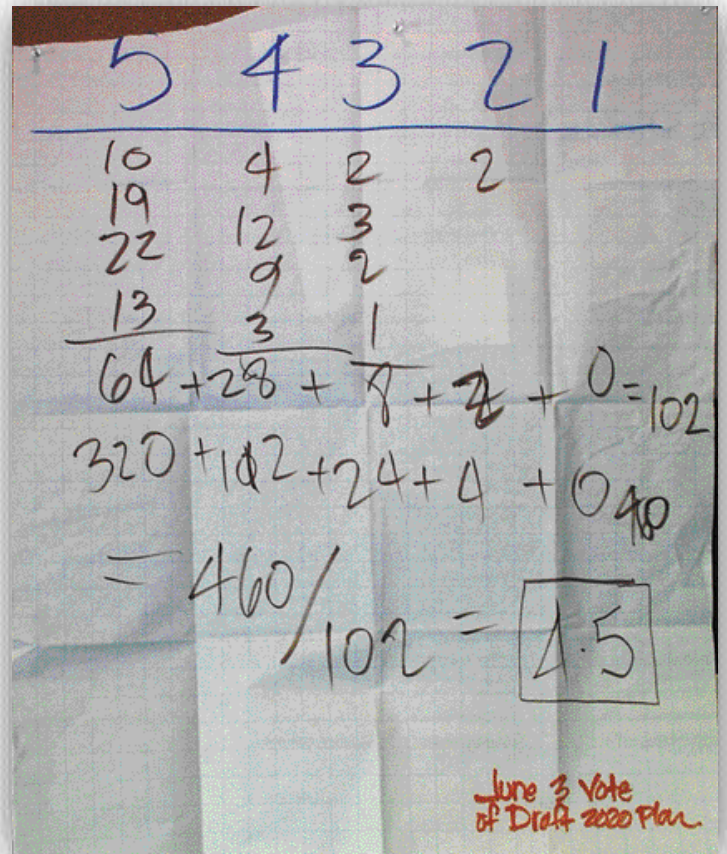 5 4 3 2 1
10 4 2 2
19 12 3
22 9 2
13 3 1
64 + 28 + 8 + 2 + 0 = 102
320 + 112 + 24 + 4 + 0
= 460 / 102 = 4.5
June 3 Vote
of Draft 2020 Plan